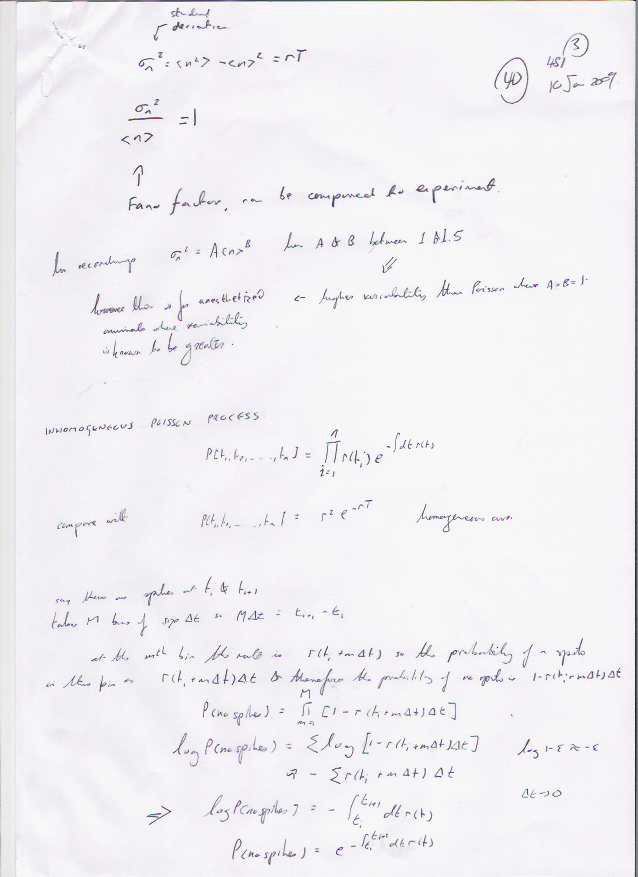 standard
deviation
σₙ² = <n²> - <n>² = rT
(40)
(3)
10 Jan 2009
σₙ² / <n> = 1
↑
Fano factor, can be compared to experiment.
In recordings σₙ² = A<n>ᴮ has A & B between 1 & 1.5
⇓
however this is for anesthetized ← higher variability than Poisson where A=B=1.
animals where variability
is known to be greater.
INHOMOGENEOUS POISSON PROCESS
P[t₁,t₂,...,tₙ] = ∏ᵢ₌₁ⁿ r(tᵢ) e^{-∫dt r(t)}
compare with P[t₁,t₂,...,tₙ] = r² e^{-rT} homogeneous
say there are spikes at tᵢ & tᵢ₊₁
takes M bins of size Δt so MΔt = tᵢ₊₁ - tᵢ
at the mth bin the rate is r(tᵢ+mΔt) so the probability of a spike
in this bin is r(tᵢ+mΔt)Δt & therefore the probability of no spike is 1-r(tᵢ+mΔt)Δt
P(no spikes) = ∏ₘ₌₁ᴹ [1 - r(tᵢ+mΔt)Δt]
log P(no spikes) = Σ log [1 - r(tᵢ+mΔt)Δt] log 1-ε ≈ -ε
≈ - Σ r(tᵢ+mΔt) Δt
Δt→0
⇒ log P(no spikes) = - ∫_{tᵢ}^{tᵢ₊₁} dt r(t)
P(no spikes) = e^{-∫_{tᵢ}^{tᵢ₊₁} dt r(t)}